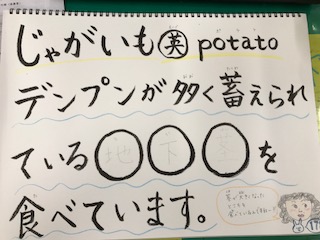 じゃがいも㊥英 potato
デンプンが多く蓄えられ
ている〇〇〇を
食べています。